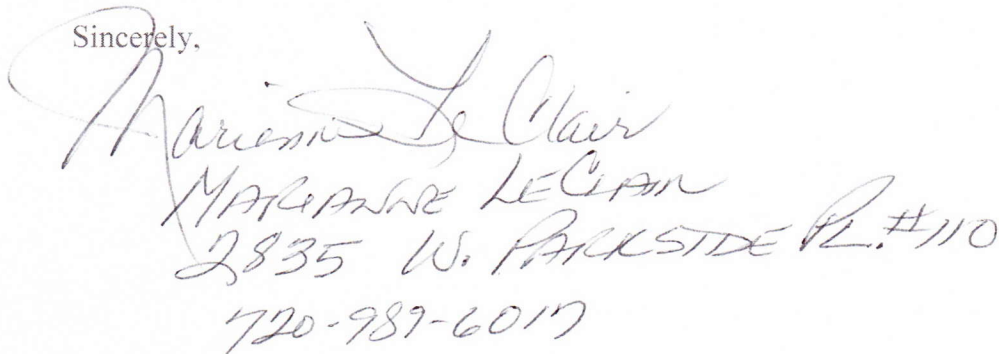 Sincerely,
Marianne LeClair
MARIANNE LECLAIR
2835 W. PARKSIDE PL. #110
720-989-6017